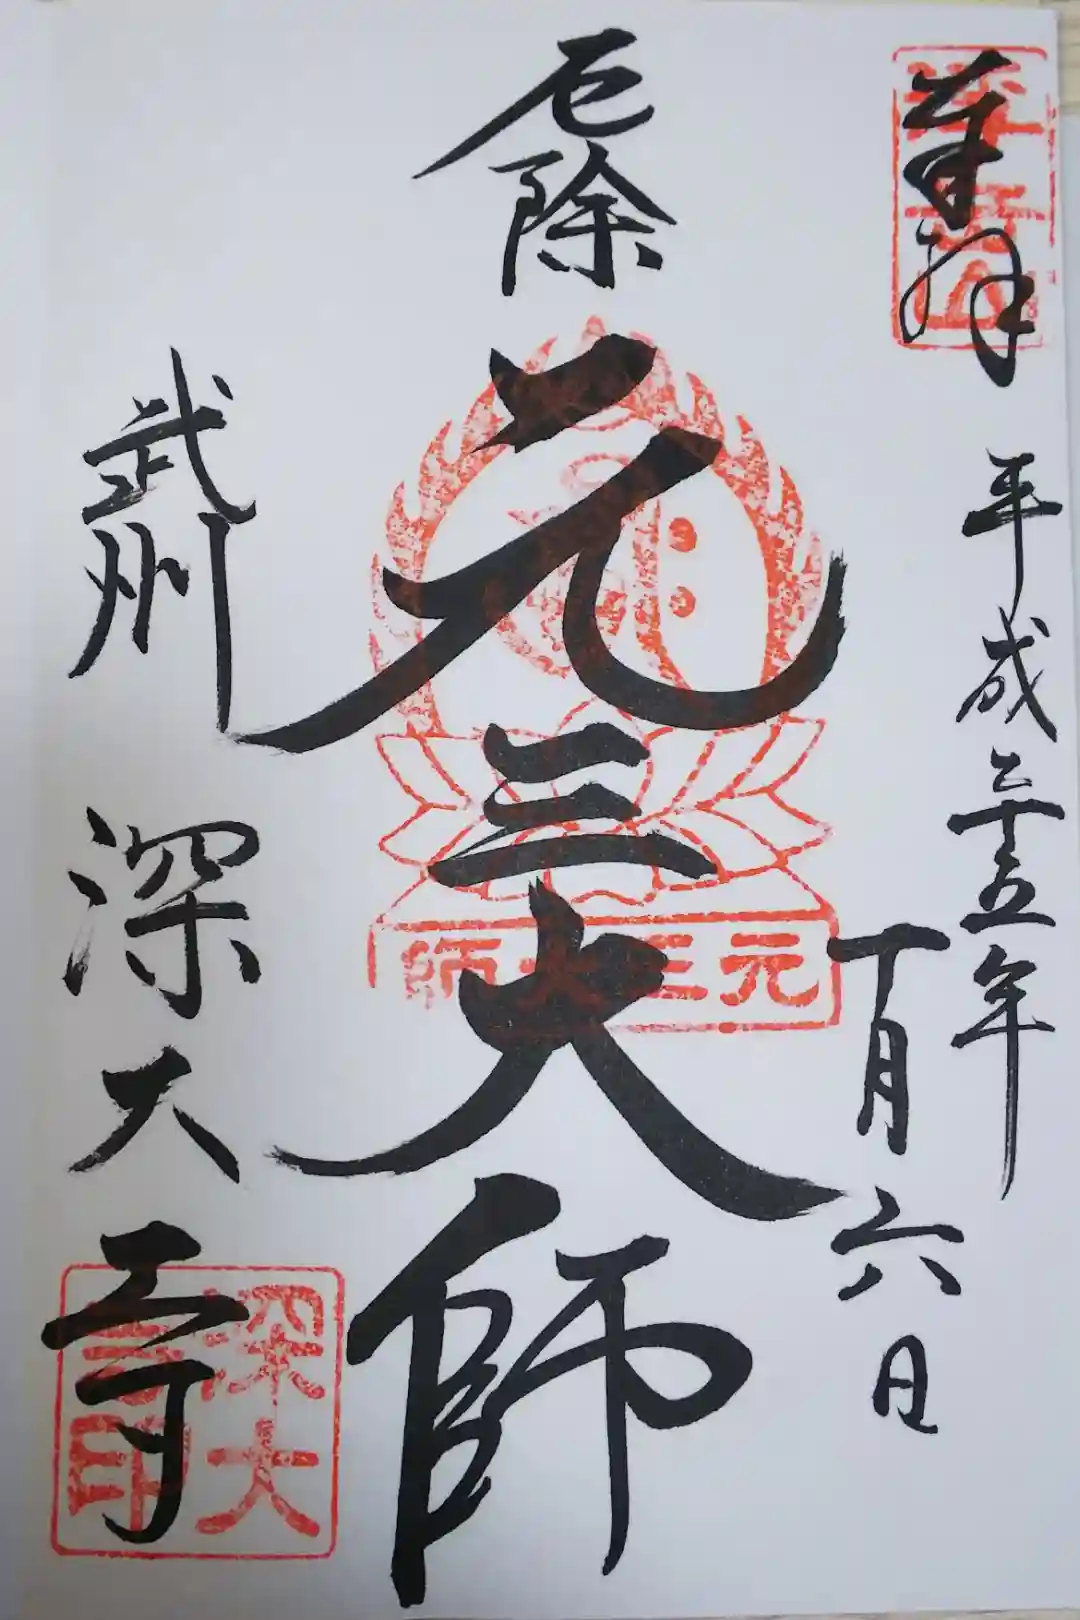 奉拝
平成二十五年
月六日
厄除
元三大師
元三大師
武州
深大寺
深大
寺印